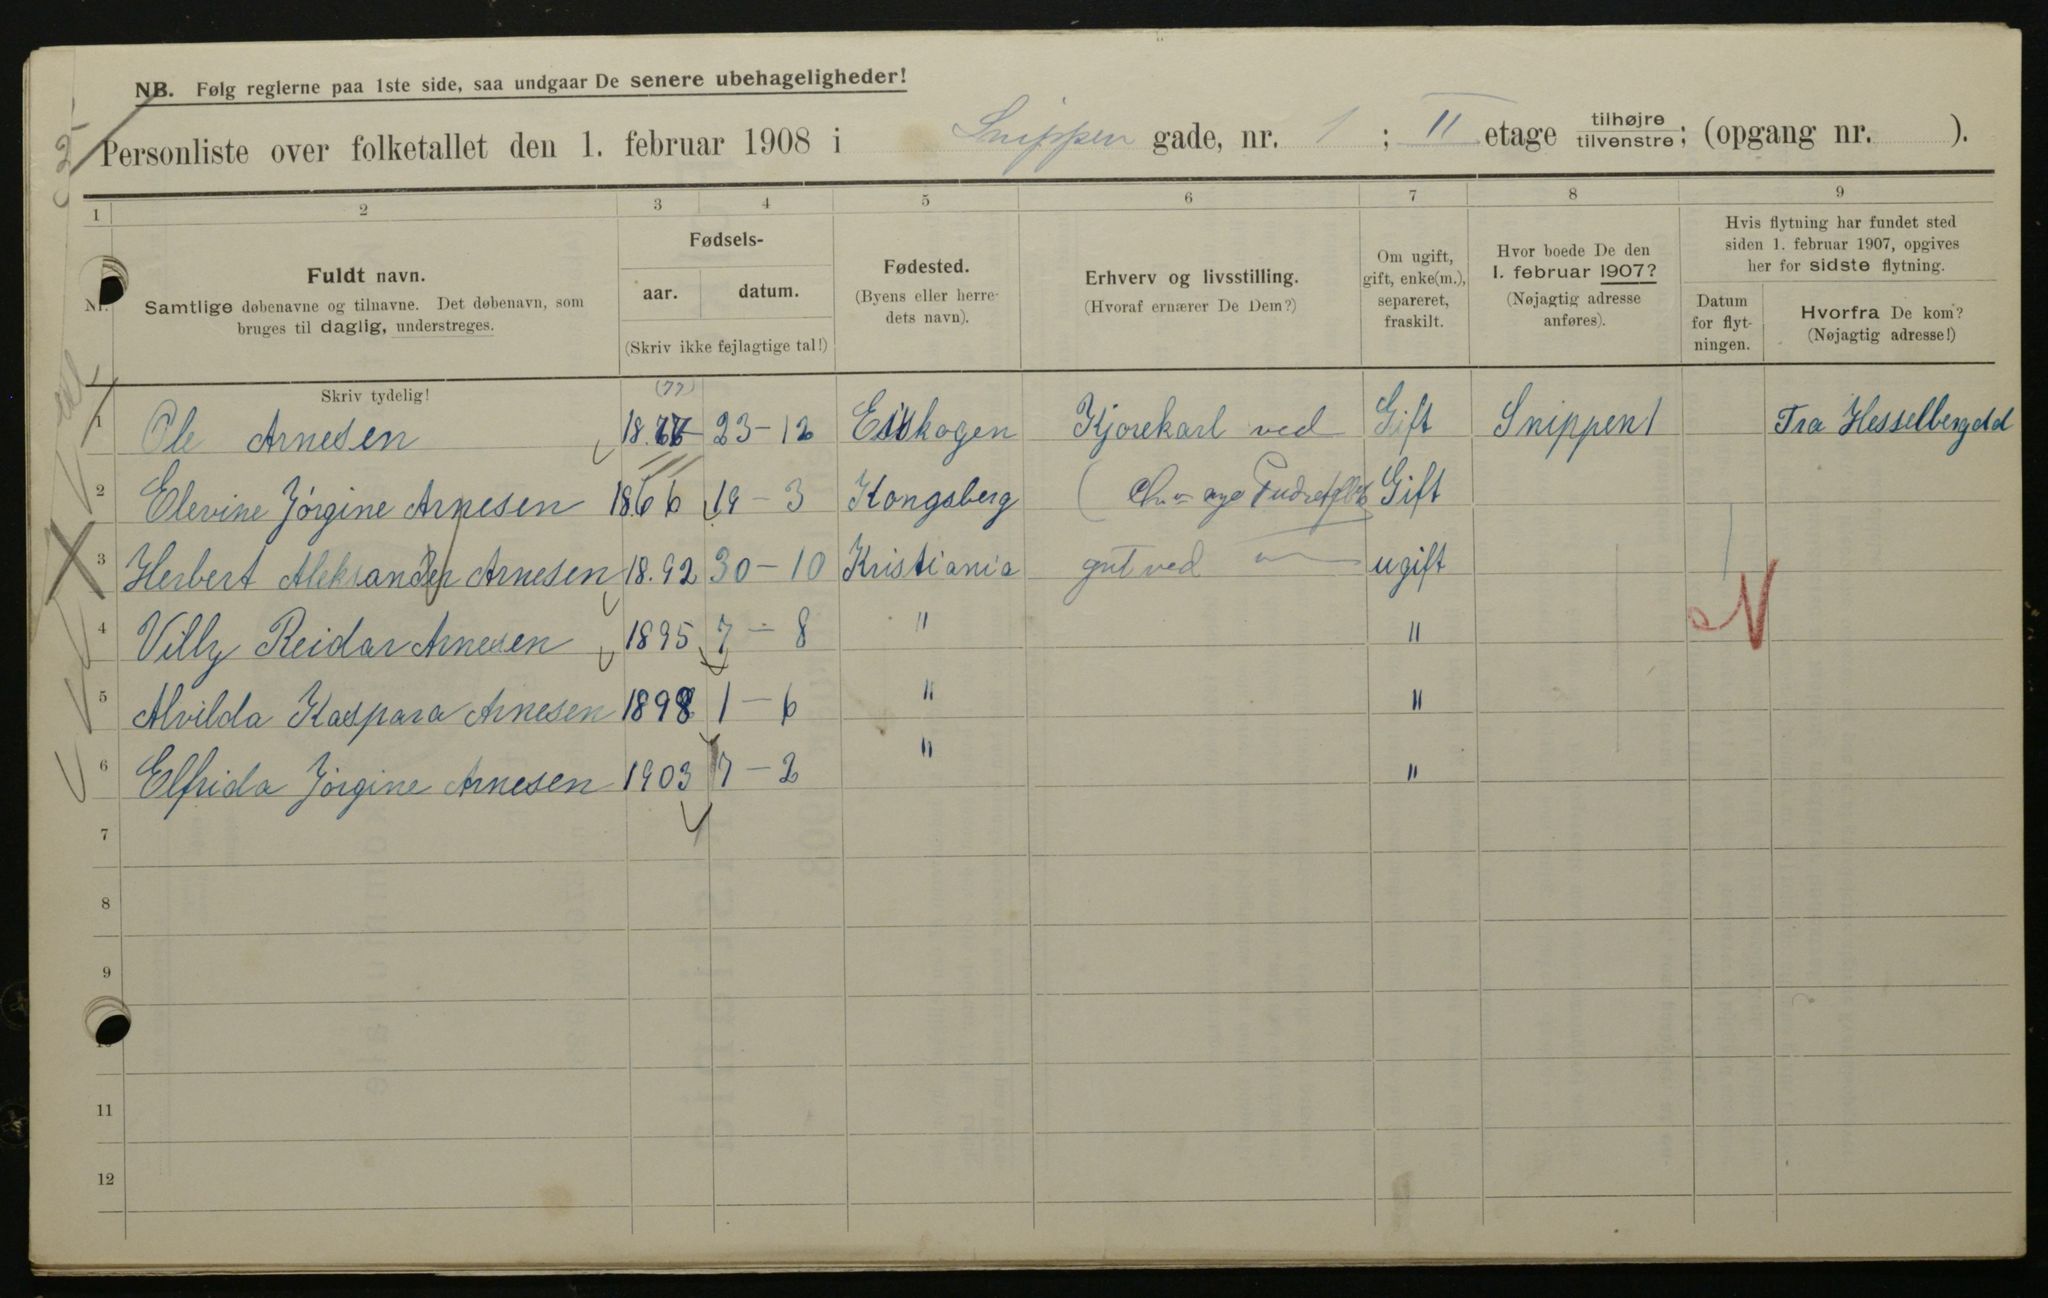 NB. Følg reglerne paa 1ste side, saa undgaar De senere ubehageligheder!
Personliste over folketallet den 1. februar 1908 i Snippen gade, nr. 1 ; II etage tilhøjre tilvenstre; (opgang nr. ).
1 2 3 4 5 6 7 8 9
Nr.
Fuldt navn.
Samtlige døbenavne og tilnavne. Det døbenavn, som
bruges til daglig, understreges.
Fødsels-
aar. datum.
(Skriv ikke fejlagtige tal!)
Fødested.
(Byens eller herre-
dets navn).
Erhverv og livsstilling.
(Hvoraf ernærer De Dem?)
Om ugift,
gift, enke(m.),
separeret,
fraskilt.
Hvor boede De den
1. februar 1907?
(Nøjagtig adresse
anføres).
Hvis flytning har fundet sted
siden 1. februar 1907, opgives
her for sidste flytning.
Datum
for flyt-
ningen.
Hvorfra De kom?
(Nøjagtig adresse!)
Skriv tydelig!
(77)
1 Ole Arnesen 23-12 Kjørekarl ved Gift Snippen 1 Fra Hesselberg
2 Elevine Jørgine Arnesen 1866 19-3 Kongsberg Gift
3 Herbert Aleksander Arnesen 18.92 30-10 Kristiania gut ved ugift
N
4 Villy Reidar Arnesen 1895 7-8 " "
5 Alvilda Kaspara Arnesen 1898 1-6 " "
6 Elfrida Jørgine Arnesen 1903 7-2 " "
7
8
9
11
12